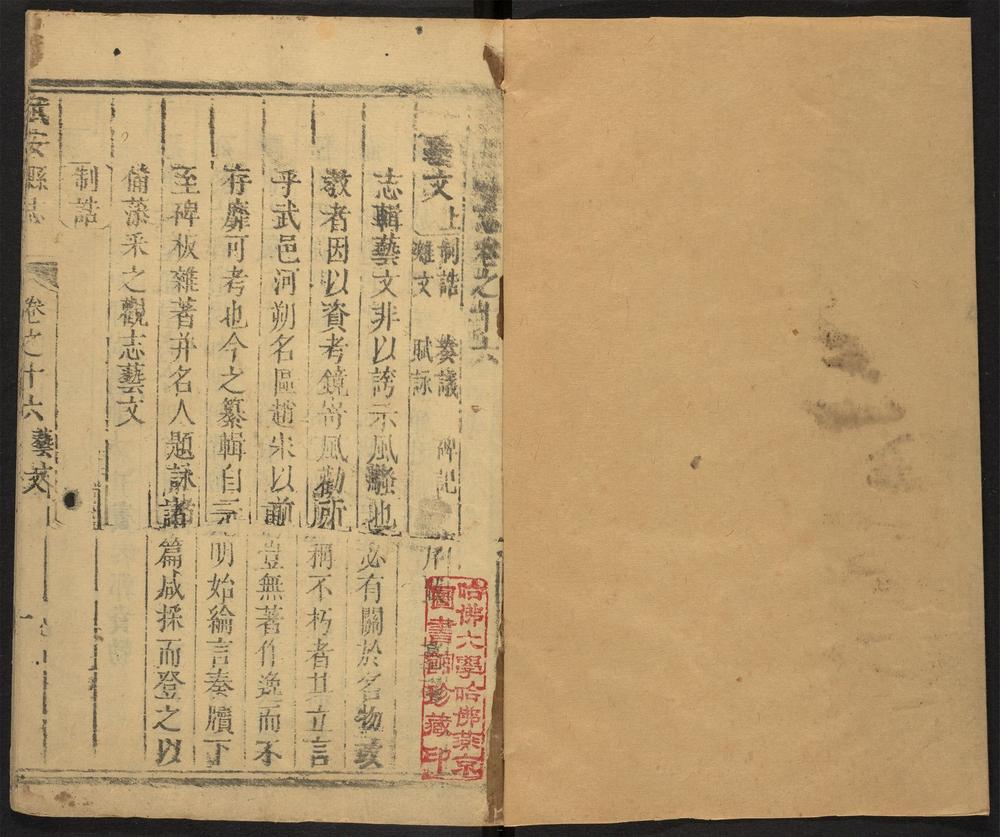 志卷之十六
藝文上 制誥 奏議 碑記 序
雜文 賦詠
志輯藝文非以誇示風騷也必有關於名物政
教者因以資考鏡峕風勸所稱不朽者其立言
乎武邑河朔名區趙宋以前豈無著作逸而不
存靡可考也今之纂輯自元明始綸言奏牘下
至碑板雜著并名人題詠諸篇咸採而登之以
備藻采之觀志藝文
制誥
武安縣志 卷之十六 藝文 一
哈佛大學哈佛燕京
圖書館珍藏印